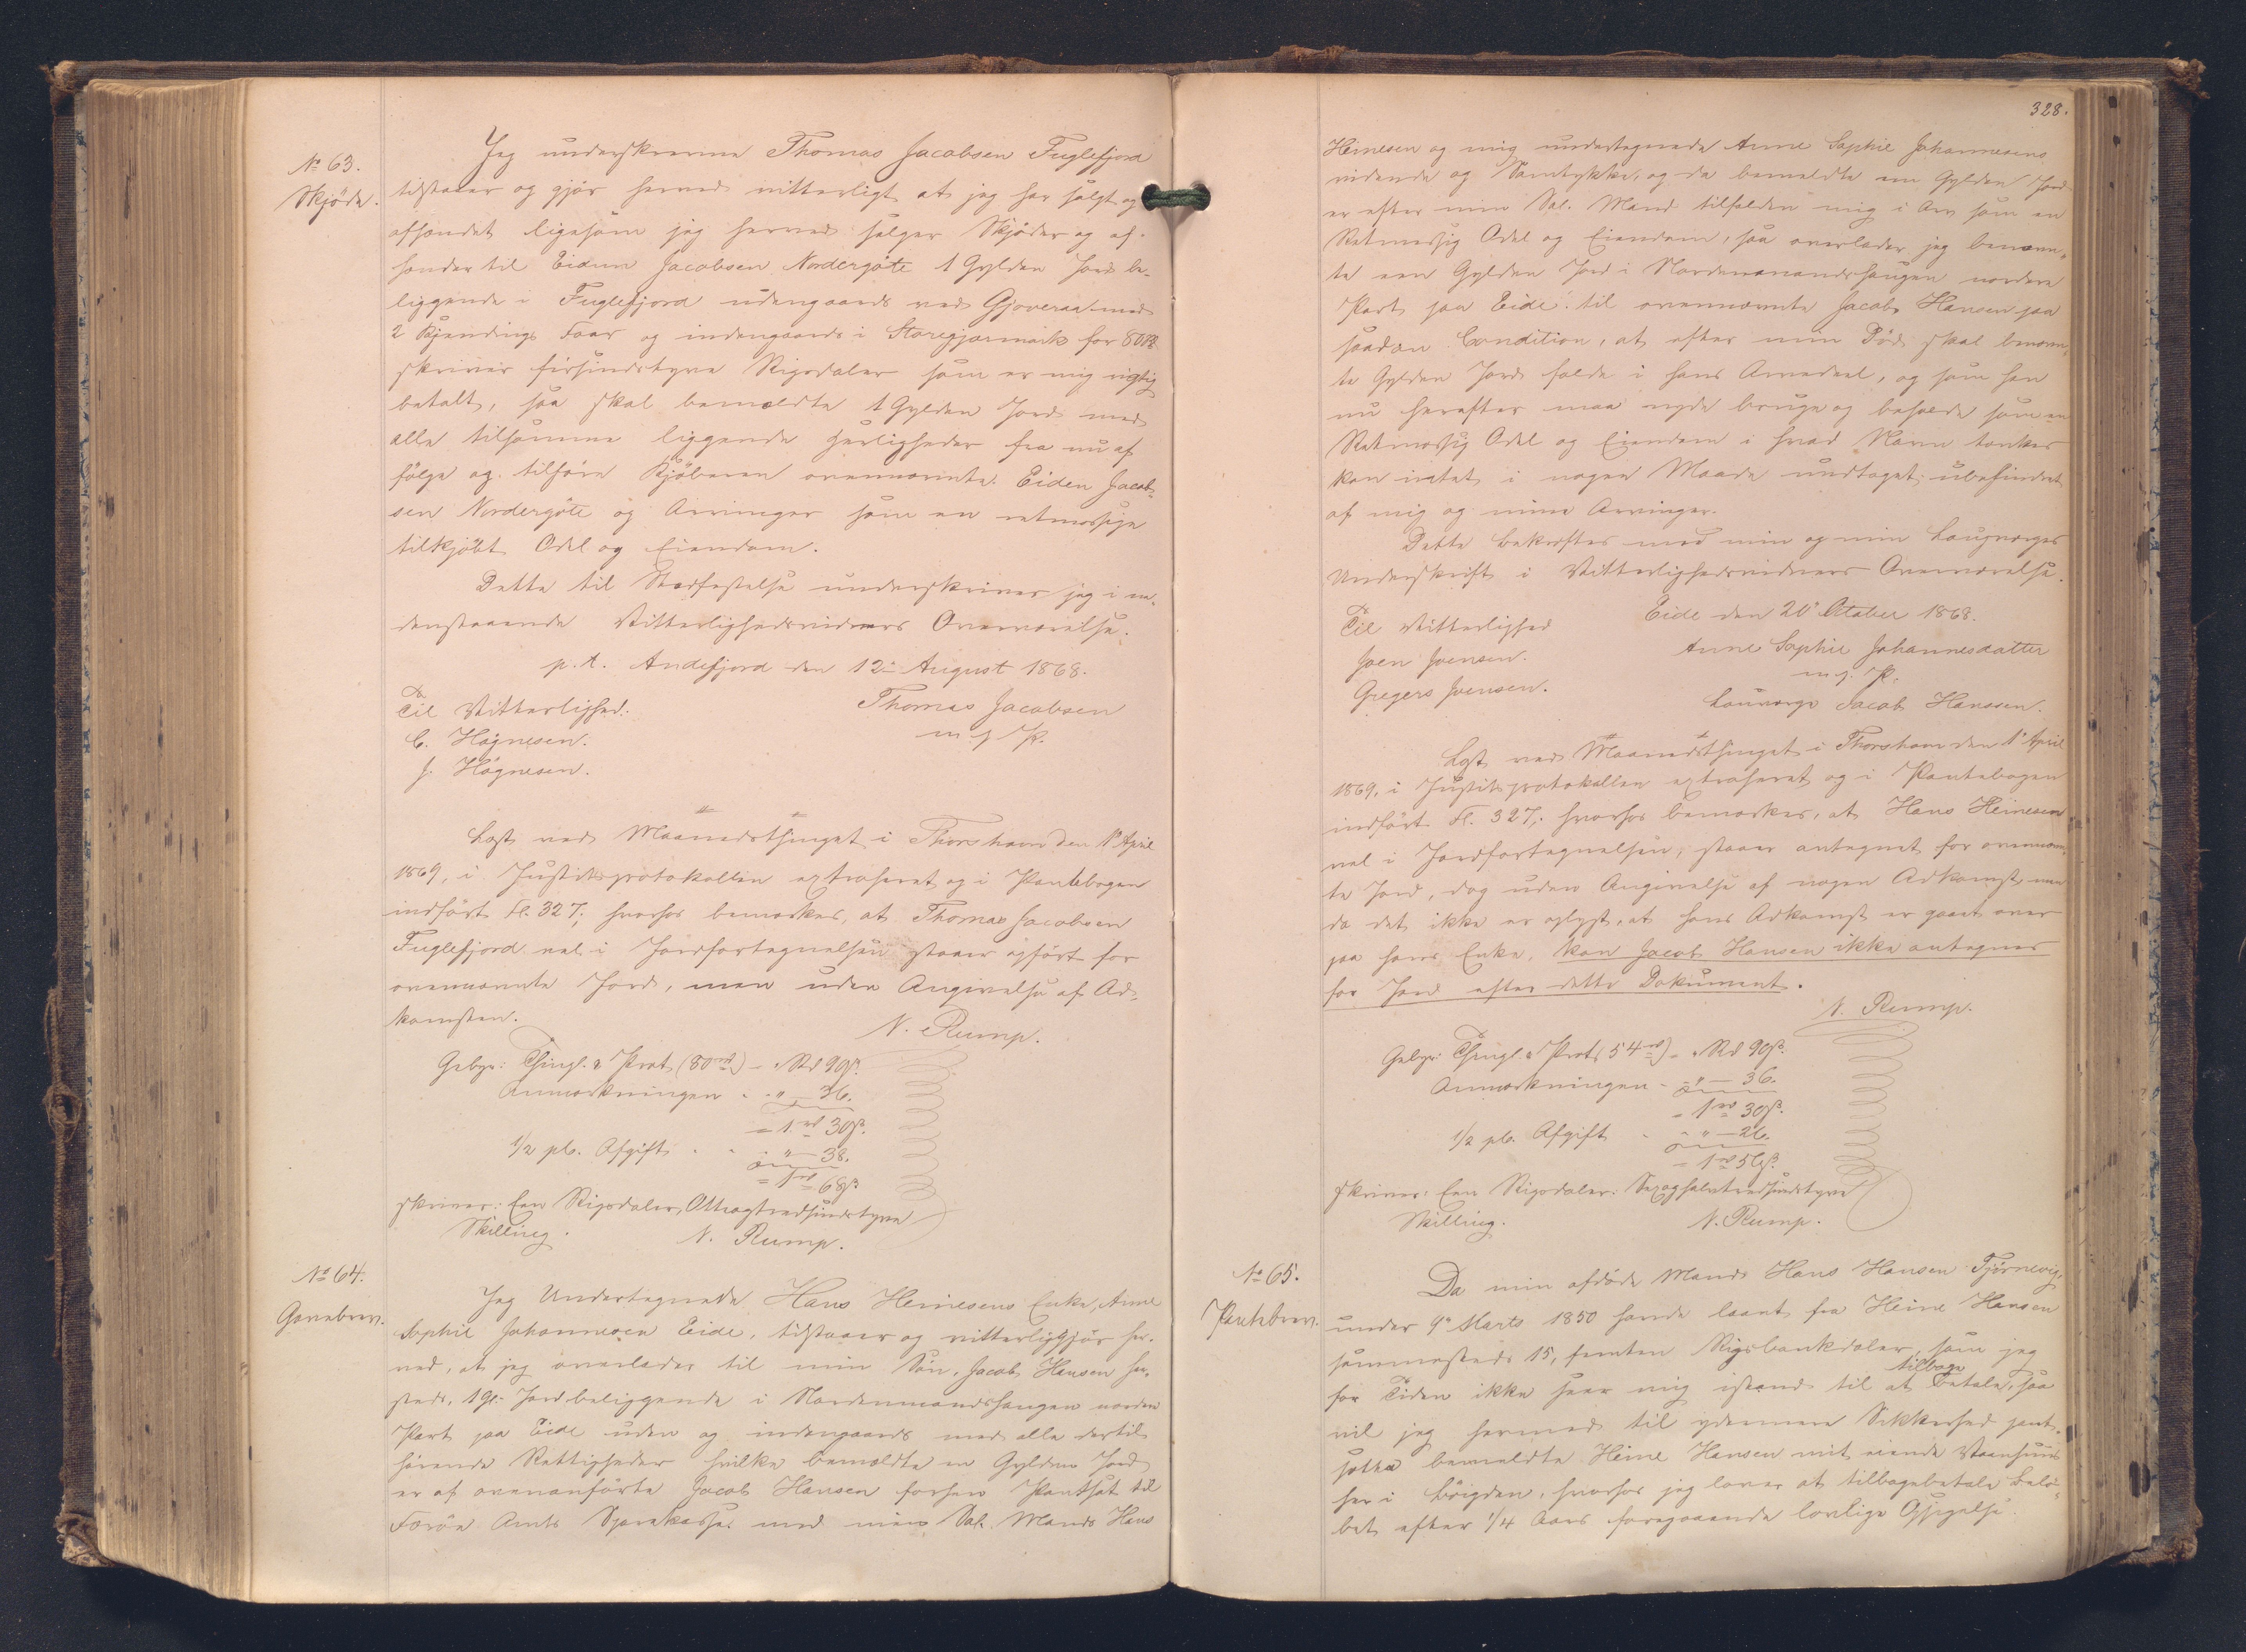 No 63.
Skjöde.
Jeg underskrevne Thomas Jacobsen Fuglefjord
tilstaaer og gjör herved vitterligt at jeg har solgt og
afhændet ligesom jeg herved sælger Skjöder og af-
hænder til Eidun Jacobsen Nordergöte 1 Gylden Jord be-
liggende i Fuglefjord udengaards ved Gjoveraa med
2 Kjendings Faar og indengaards i Storegjærmark for 80 Rd
skriver firsindstyve Rigsdaler som er mig rigtig
betalt, saa skal bemældte 1 Gylden Jord med
alle tilsammen liggende Herligheder fra nu af
fölge og tilhöre Kjöberen ovennævnte Eiden Jacob-
sen Nordergöte og Arvinger som en retmæssige
tilkjöbt Odel og Eiendom.
Dette til Stadfæstelse underskriver jeg i ne-
denstaaende Vitterlighedsvidners Overværelse.
p.t. Andefjord den 12te August 1868.
Til Vitterlighed: Thomas Jacobsen
C. Högnesen. m. f. P.
J. Högnesen.
Læst ved Maanedsthinget i Thorshavn den 1e April
1869, i Justitsprotokollen extraheret og i Pantebogen
indfört Fl. 327; hvorhos bemærkes, at Thomas Jacobsen
Fuglefjord vel i Jordfortegnelsen staaer opfört for
ovennævnte Jord, men uden Angivelse af Ad-
komsten.
N. Rump.
Gebyr: Thingl. & Prot. (80 rd) - " Rd 90 s.
Anmærkningen - " - 36.
= 1 rd 30 s.
1/2 pCt. Afgift - " - 38.
= 1 rd 68 s.
skriver: Een Rigsdaler, Otteogtredsindstyve
Skilling. N. Rump.
No 64.
Gavebrev.
Jeg Undertegnede Hans Heinesens Enke, Anne
Sophie Johannesen Eide, tilstaaer og vitterliggjör her-
ved, at jeg overlader til min Sön, Jacob Hansen her-
steds, 1 Gl. Jord beliggende i Nordenmandshaugen norden
Part paa Eide uden og indengaards med alle dertil
hörende Rettigheder hvilke bemældte en Gylden Jord
er af ovenanförte Jacob Hansen forhen Pantsat til
Færöe Amts Sparekasse med min Sal. Mands Hans
328.
Heinesen og mig undertegnede Anne Sophie Johannesens
vidende og Samtykke, og da bemeldte en Gylden Jord
er efter min Sal. Mand tilfalden mig i Arv som en
Retmæssig Odel og Eiendom, saa overlader jeg benævn-
te een Gylden Jord i Nordenmandshaugen nordere
Part paa Eide til ovennævnte Jacob Hansen paa
saadan Condition, at efter min Död skal benævn-
te Gylden Jord falde i hans Arvedeel, og som han
nu herefter maa nyde bruge og beholde som en
Retmæssig Odel og Eiendom i hvad Navn tænkes
kan intet i nogen Maade undtaget, ubehindret
af mig og mine Arvinger.
Dette bekræftes med min og min Laugværges
Underskrift i Vitterlighedsvidners Overværelse.
Eide den 20e Octaber 1868.
Til Vitterlighed
Joen Joensen. Anne Sophie Johannesdatter
Gregers Joensen. m. f. P.
Lauværge Jacob Hanssen.
Læst ved Maanedsthinget i Thorshavn den 1e April
1869, i Justitsprotokollen extraheret og i Pantebogen
indfört Fl. 327; hvorhos bemærkes, at Hans Heinesen
vel i Jordfortegnelsen, staaer antegnet for ovennævn-
te Jord, dog uden Angivelse af nogen Adkomst, men
da det ikke er oplyst, at hans Adkomst er gaaet over
paa hans Enke, kan Jacob Hansen ikke antegnes
for Jord efter dette Dokument.
N. Rump.
Gebyr: Thingl. & Prot. (54 rd) - " Rd 90 s.
Anmærkningen - " - 36.
= 1 rd 30 s.
1/2 pCt. Afgift - " - 26.
= 1 rd 56 s.
skriver: Een Rigsdaler: Sexoghalvtredsindstyve
Skilling. N. Rump.
No 65.
Pantebrev.
Da min afdöde Mand Hans Hansen Tjörnevig,
under 9e Marts 1850 havde laant fra Heine Hansen
sammesteds 15, femten Rigsbankdaler, som jeg
for Tiden ikke seer mig istand til at tilbage betale, saa
vil jeg hermed til ydermere Sikkerhed pant-
sætte bemeldte Heine Hansen mit eiende Vaanhuus
her i Böigden, hvorhos jeg lover at tilbagebetale Belö-
bet efter 1/4 Aars foregaaende lovlige Opsigelse.